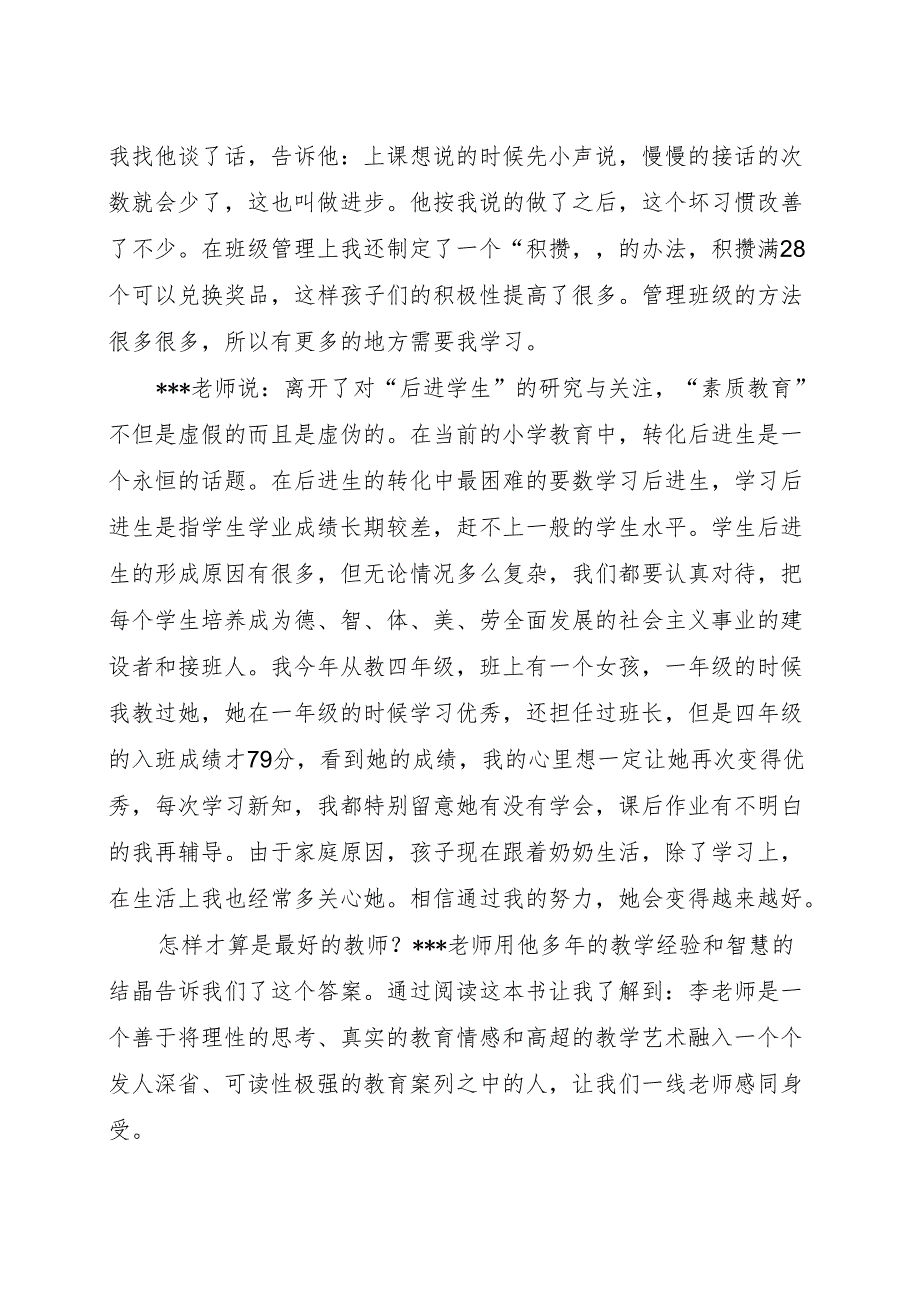 我找他谈了话，告诉他：上课想说的时候先小声说，慢慢的接话的次
数就会少了，这也叫做进步。他按我说的做了之后，这个坏习惯改善
了不少。在班级管理上我还制定了一个“积攒，，的办法，积攒满28
个可以兑换奖品，这样孩子们的积极性提高了很多。管理班级的方法
很多很多，所以有更多的地方需要我学习。
***老师说：离开了对“后进学生”的研究与关注，“素质教育”
不但是虚假的而且是虚伪的。在当前的小学教育中，转化后进生是一
个永恒的话题。在后进生的转化中最困难的要数学习后进生，学习后
进生是指学生学业成绩长期较差，赶不上一般的学生水平。学生后进
生的形成原因有很多，但无论情况多么复杂，我们都要认真对待，把
每个学生培养成为德、智、体、美、劳全面发展的社会主义事业的建
设者和接班人。我今年从教四年级，班上有一个女孩，一年级的时候
我教过她，她在一年级的时候学习优秀，还担任过班长，但是四年级
的入班成绩才79分，看到她的成绩，我的心里想一定让她再次变得优
秀，每次学习新知，我都特别留意她有没有学会，课后作业有不明白
的我再辅导。由于家庭原因，孩子现在跟着奶奶生活，除了学习上，
在生活上我也经常多关心她。相信通过我的努力，她会变得越来越好。
怎样才算是最好的教师？***老师用他多年的教学经验和智慧的
结晶告诉我们了这个答案。通过阅读这本书让我了解到：李老师是一
个善于将理性的思考、真实的教育情感和高超的教学艺术融入一个个
发人深省、可读性极强的教育案列之中的人，让我们一线老师感同身
受。